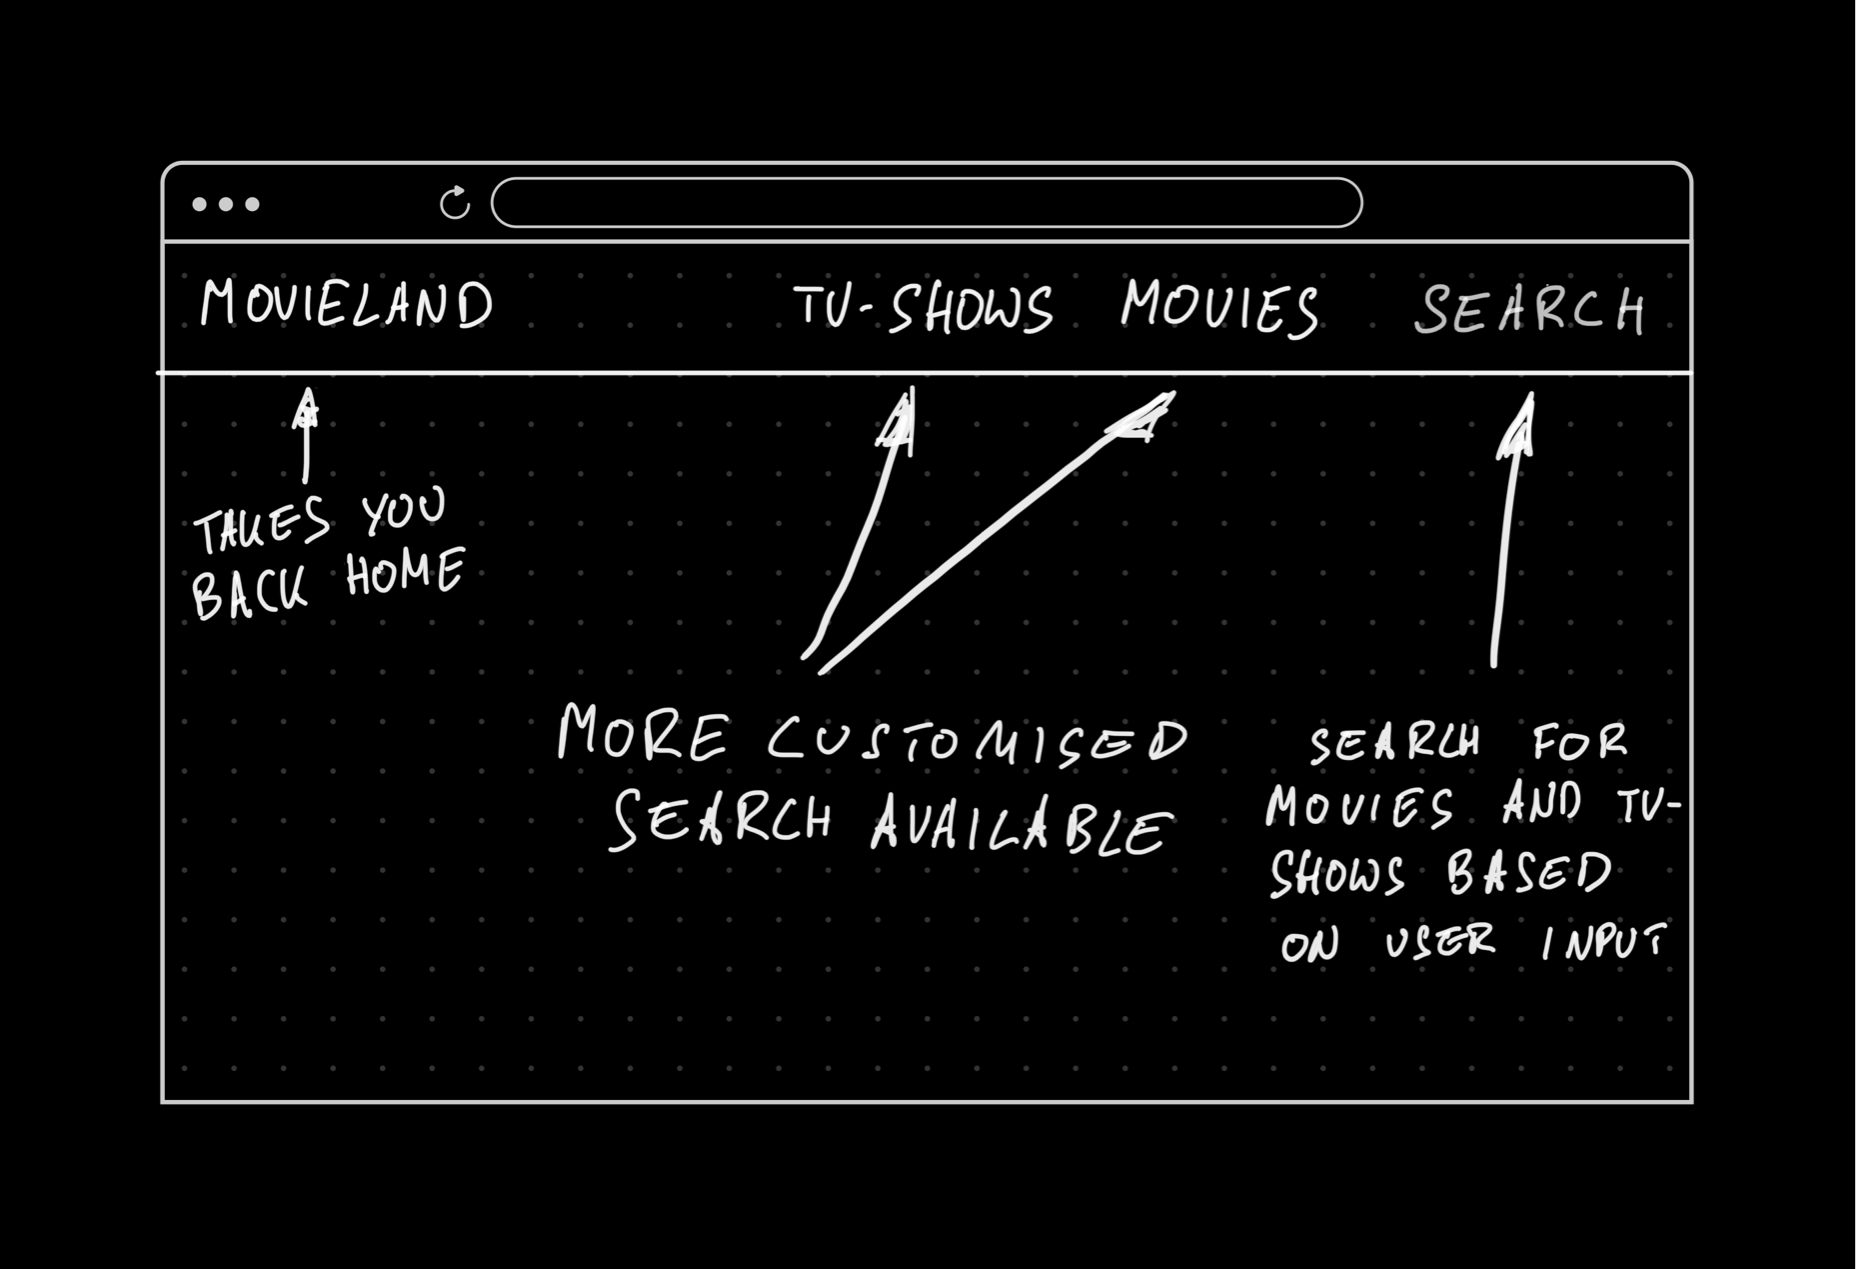 MOVIELAND TV-SHOWS MOVIES SEARCH
TAKES YOU
BACK HOME
MORE CUSTOMISED
SEARCH AVAILABLE
SEARCH FOR
MOVIES AND TV-
SHOWS BASED
ON USER INPUT